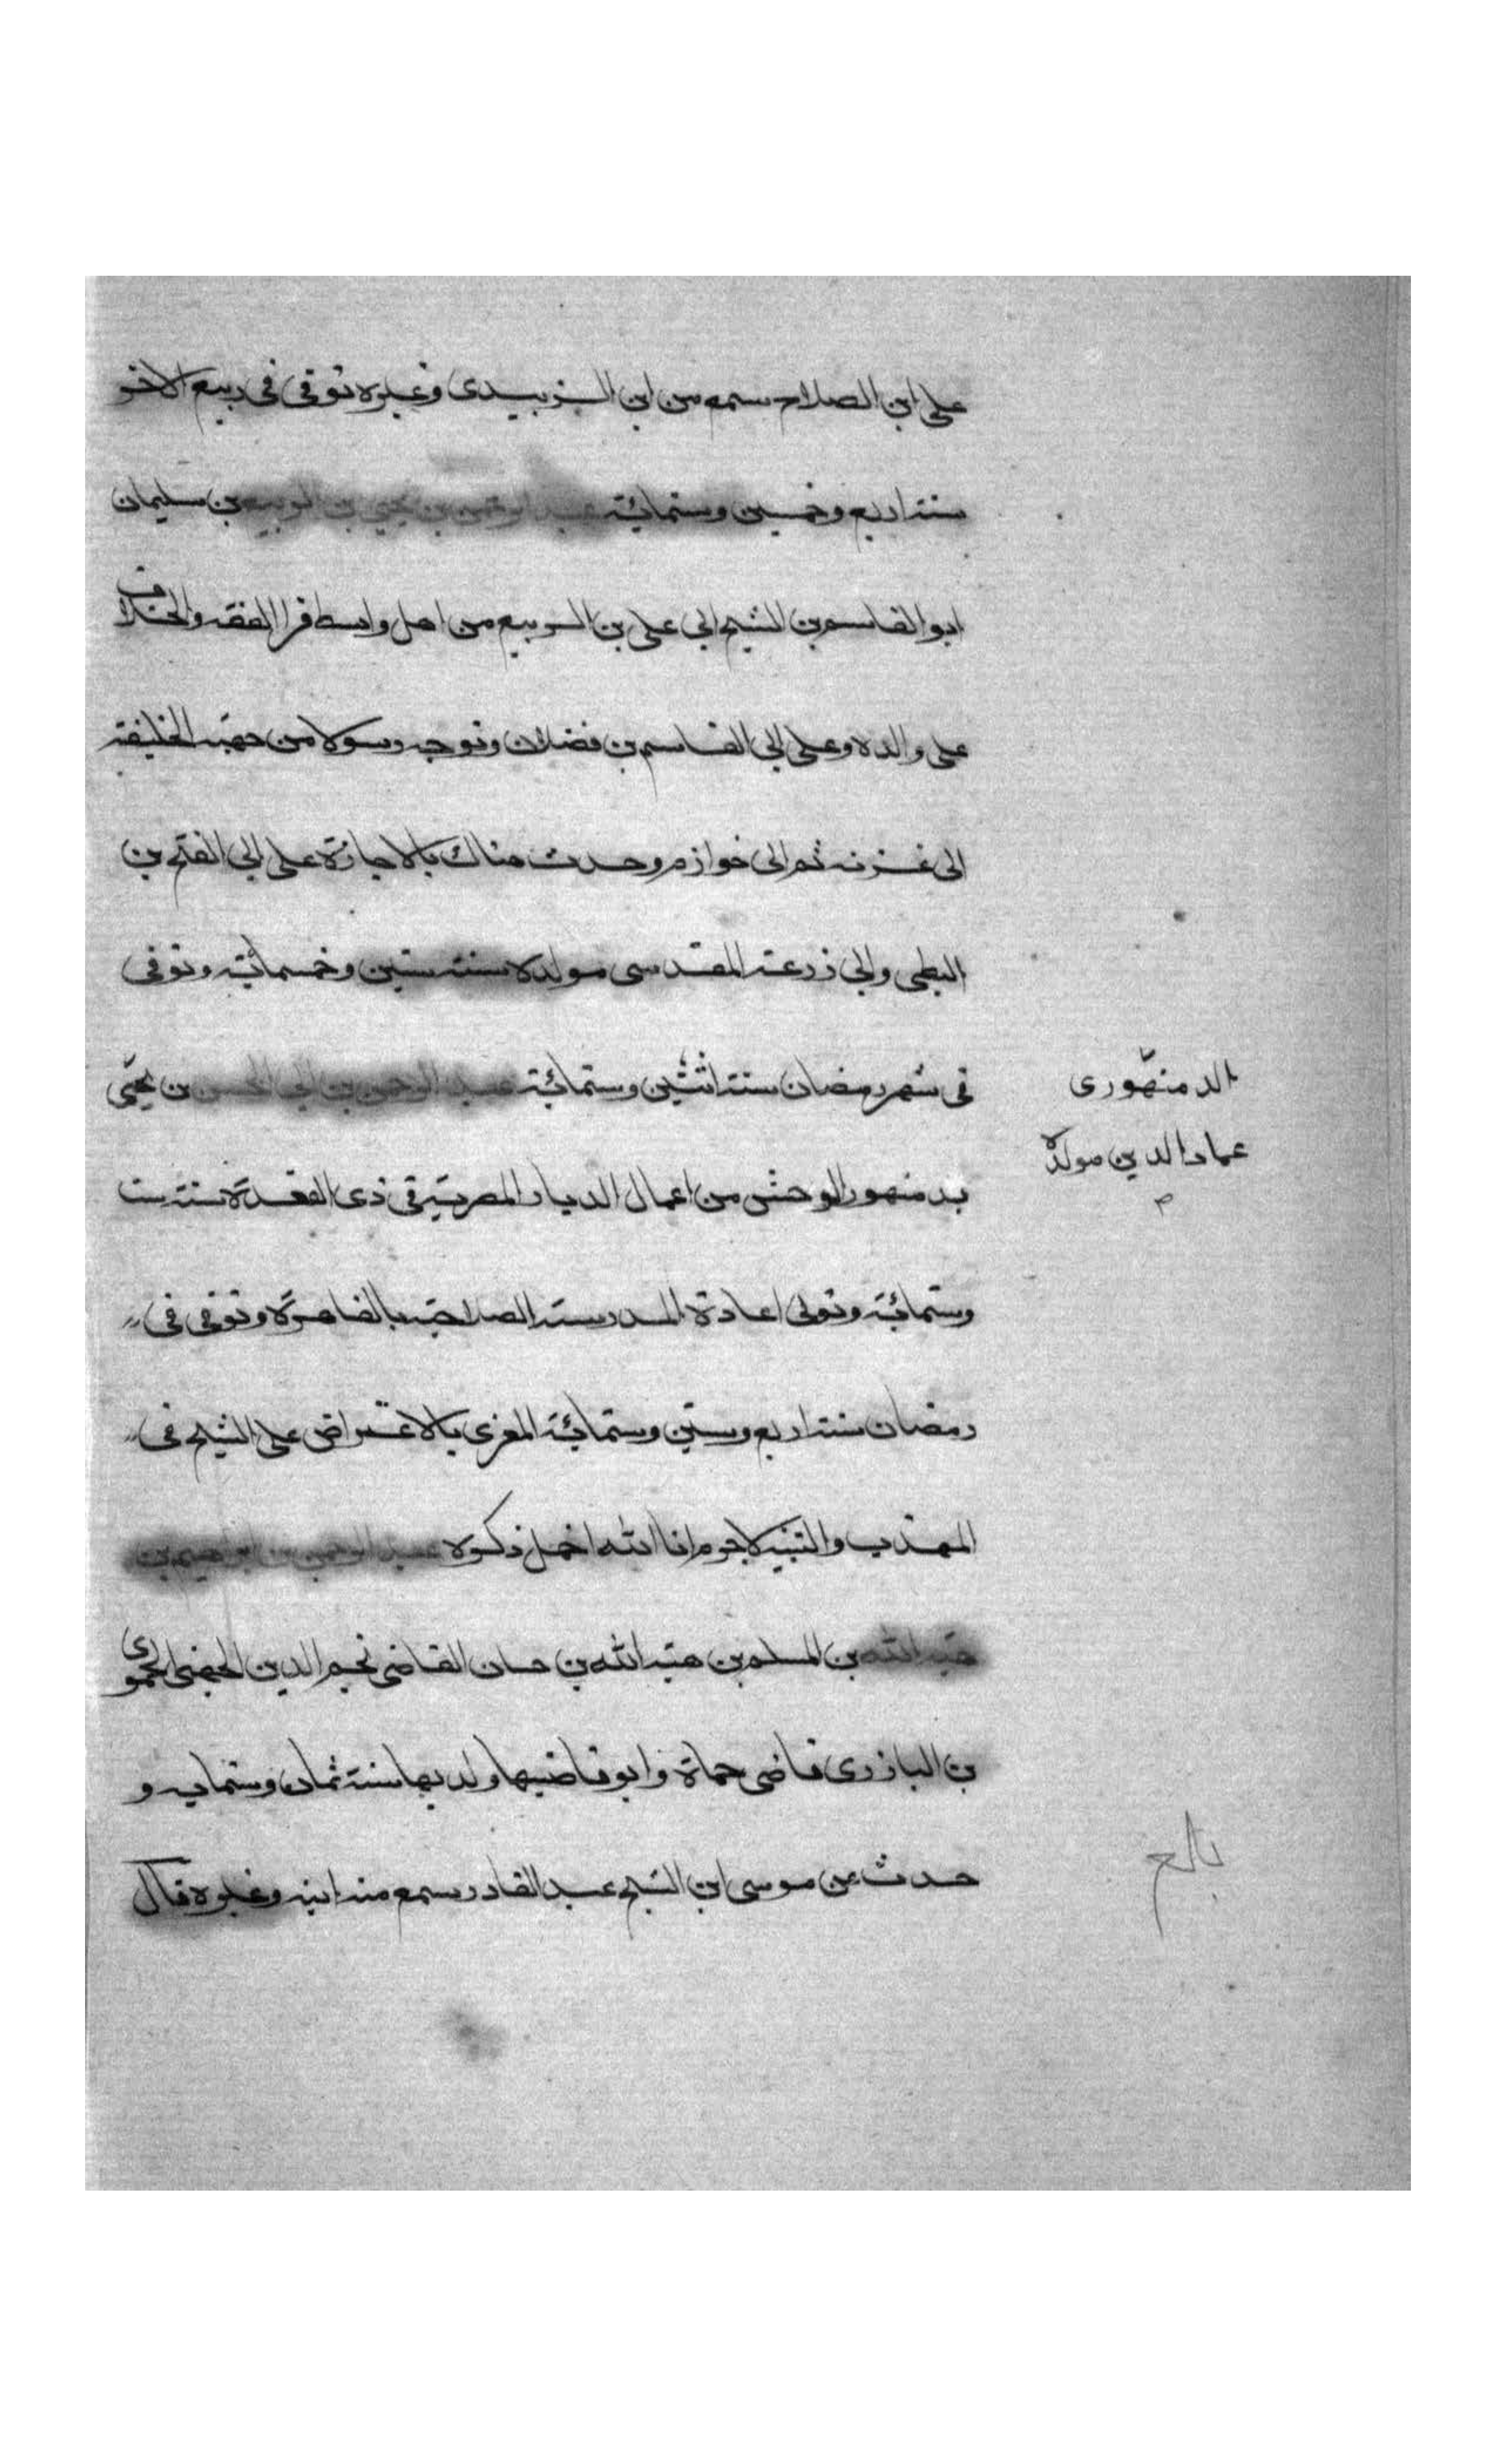 على ابن الصلاح سمع من ابن الزبيدى وغيره توفى فى ربيع الاخر
سنة اربع وخمسين وستمائة عبد الرحمن بن يحيى بن الربيع بن سليمان
ابو القاسم بن الشيخ ابى على بن الربيع من اهل واسط قرا الفقه والخلاف
على والده وعلى ابى القاسم بن فضلان وتوجه رسولا من جهة الخليفة
الى غزنه ثم الى خوازم وحدث هناك بالاجازة على ابى الفتح بن
البطى وابى زرعة المقدسى مولده سنة ستين وخمسمائة وتوفى
فى شهر رمضان سنة اثنتين وستمائة عبد الرحمن بن ابى الحسن بن يحيى
الدمنهورى
عماد الدين مولده
بدمنهور الوحش من اعمال الديار المصرية فى ذى القعدة سنة ست
وستمائة وتولى اعادة المدرسة الصلاحية بالقاهرة وتوفى فى
رمضان سنة اربع وستين وستمائة المغرى بالاعتراض على الشيخ فى
المهذب والتنبيه لاجرم انا الله اخمل ذكره عبد الرحمن بن ابراهيم بن
هبة الله بن المسلم بن هبة الله بن حسان القاضى نجم الدين الجهنى الحموى
بن البازرى قاضى حماة وابو قاضيها ولد بها سنة ثمان وستمايه و
حدث عن موسى ابن الشيخ عبد القادر سمع منه ابنه وغيره قال
بالع